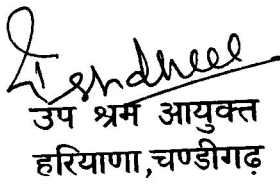 उप श्रम आयुक्त
हरियाणा,चण्डीगढ़